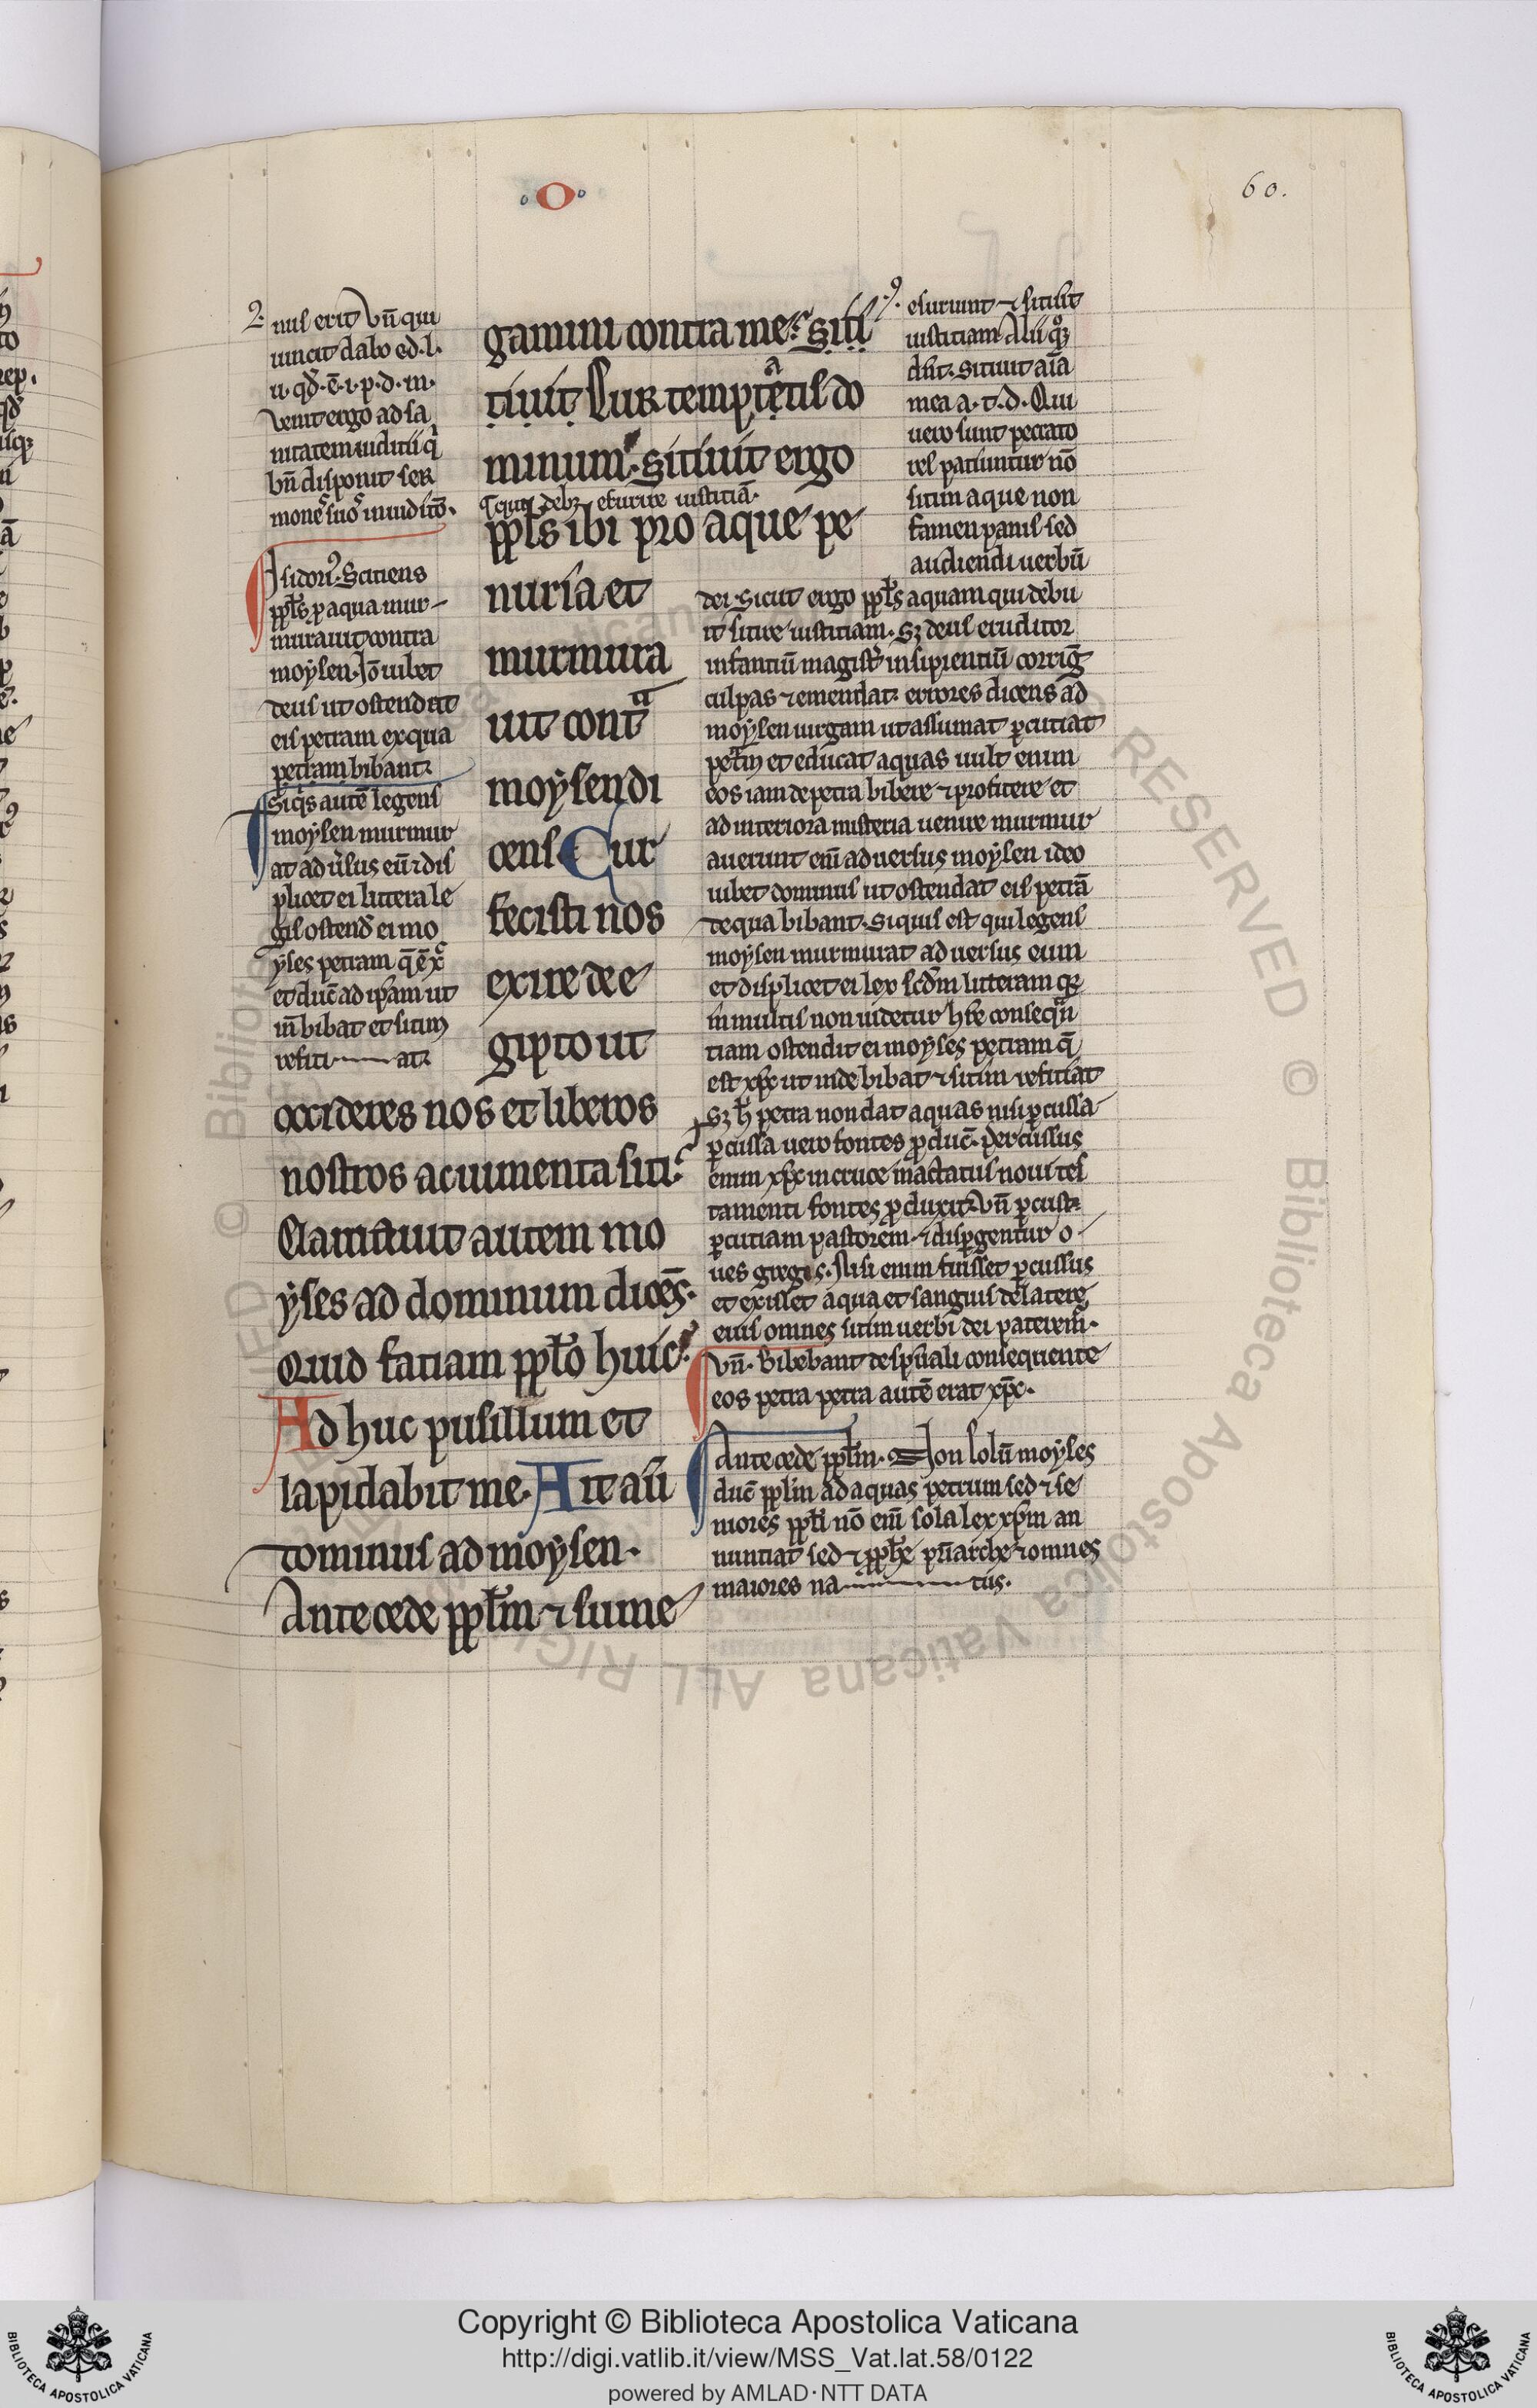 o
60.
nis erit vn̄ qui
uincit dabo ed. l.
u. qđ. ē. i. p. d. m.
venit ergo ad sa
bn̄ disponit ser
Isidorꝰ. Scitiens
pplꝰs ꝑ aqua mur-
murauit contra
moysen. Iō iubet
deus ut ostendat
eis petram ex qua
petram bibant.
Siqͥs autē legens
moysen murmur
at aduͥsus eū ⁊ dis
plicet ei littera le
gis ostendͥ ei mo
yses petram q̄ ē xͨ
et duc̄ ad ipsam ut
in̄ bibat et sitim
refici at.
gamini contra me. siti
tiuit Cur temptetis do
minum. Sitiuit ergo
esurire iustitiā.
ppls ibi pro aque pe
nuria et
murmura
uit contͣ
moysen di
cens Cur
fecisti nos
exire de e
gipto ut
occideres nos et liberos
nostros ac iumenta siti.
Clamauit autem mo
yses ad dominum dicēs.
Quid faciam pplo huic.
Ad huc pusillum et
lapidabit me. Ait aū
dominus ad moysen.
Antecede pplm ⁊ sume
esuriunt ⁊ sitiūt
iustitiam Alii qͦꝫ
dn̄t. Sitiuit aīa
mea a. t. d. Qui
uero sunt peccato
vel patiuntur nō
sitim aque non
famen panis sed
audiendi uerbū
dei. Sicut ergo ppls aquam qui debu
it sitire iustitiam. Sꝫ deus eruditor
infantiū magistͬ insipientiū corrig̅
culpas ⁊ emendat errores dicens ad
moysen uirgam ut assumat ꝑcutiat
petͣm et educat aquas uult enim
eos iam de petra bibere ⁊ proficere et
ad interiora misteria uenire murmur
auerunt em̄ aduersus moysen ideo
iubet dominus ut ostendat eis petrā
de qua bibant. Siquis est qui legens
moysen murmurat aduersus eum
et displicet ei lex scd̄m litteram qꝫ
in multis non uidetur hr̄e conseqͣn
tiam ostendit ei moyses petram q̄
est xp̄c ut inde bibat ⁊ sitim reficiat
Sꝫ h̄ petra non dat aquas nisi ꝑcussa
ꝑcussa uero fontes ꝓduc̄. Percussus
enim xp̄c in cruce mactatus noui tes
tamenti fontes ꝓduxit. vn̄
ꝑcutiam pastorem ⁊ dispgentur o
ues gregis. Nisi enim fuisset ꝑcussus
et exisset aqua et sanguis de latere
eius omnes sitim uerbi dei pateremͬ.
vn̄. Bibebant de spūali consequente
eos petra petra autē erat xp̄c.
Antecede pplm. Non solū moyses
duc̄ pplm ad aquas petrum sed ⁊ se
niores ppli nō em̄ sola lex xp̄m an
nuntiat sed ⁊ ppħe pͣtriarche ⁊ omnes
maiores na tu.
Copyright © Biblioteca Apostolica Vaticana
http://digi.vatlib.it/view/MSS_Vat.lat.58/0122
powered by AMLAD·NTT DATA
BIBLIOTECA APOSTOLICA VATICANA
BIBLIOTECA APOSTOLICA VATICANA